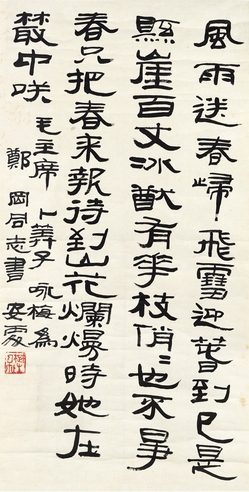 風雨送春歸飛雪迎春到已是
縣崖百丈冰猷有花枝俏俏也不爭
春只把春來報待到山花爛熳時她在
叢中咲 毛主席卜算子詠梅為
鄭岡同志書